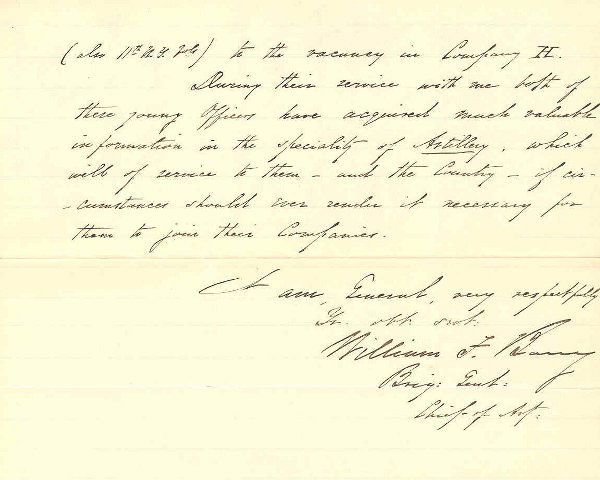 (also 11th N.Y. Vols) to the vacancy in Company H.
During their service with me both of
these young Officers have acquired much valuable
information in the speciality of Artillery, which
will of service to them - and the Country - if cir-
-cumstances should ever render it necessary for
them to join their Companies.
I am, General, very respectfully
Yr. obt. svt.
William F. Barry
Brig: Genl:
Chief of Art.